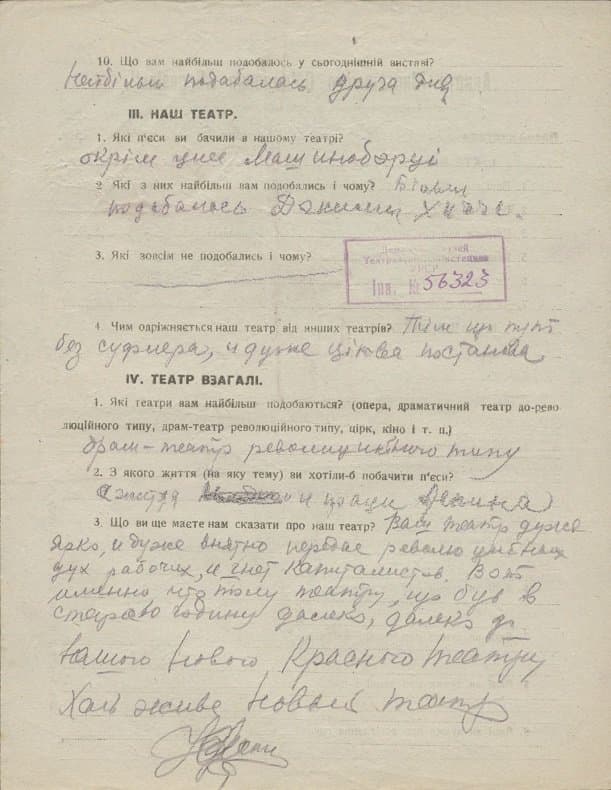 10. Що вам найбільш подобалось у сьогоднішній виставі?
подабалась друга дия
III. НАШ ТЕАТР.
1. Які п'єси ви бачили в нашому театрі?
окрім циеє Машиноборці
2 Які з них найбільш вам подобались і чому?
подабалось Джимми Хіггс.
3. Які зовсім не подобались і чому?
Державний Музей
Театрального Мистецтва
УРСР
Інв. № 56323
4. Чим одріжняється наш театр від инших театрів? Тим що
без суфлера, и дуже цікава постанова
IV. ТЕАТР ВЗАГАЛІ.
1. Які театри вам найбільш подобаються? (опера, драматичний театр до-рево-
люційного типу, драм-театр революційного типу, цірк, кіно і т. п.)
драм-театр революцийного типу
2. З якого життя (на яку тему) ви хотіли-б побачити п'єси?
и праци Ленина
3. Що ви ще маєте нам сказати про наш театр? Ваш театр дуже
ярко, и дуже внятно передає революцийних
дух рабочих, и гнет капиталистов. Вот
именно что тому театру, що був в
стараю годину далеко, далеко до
вашого нового Красного театру
Хай живе новый театр